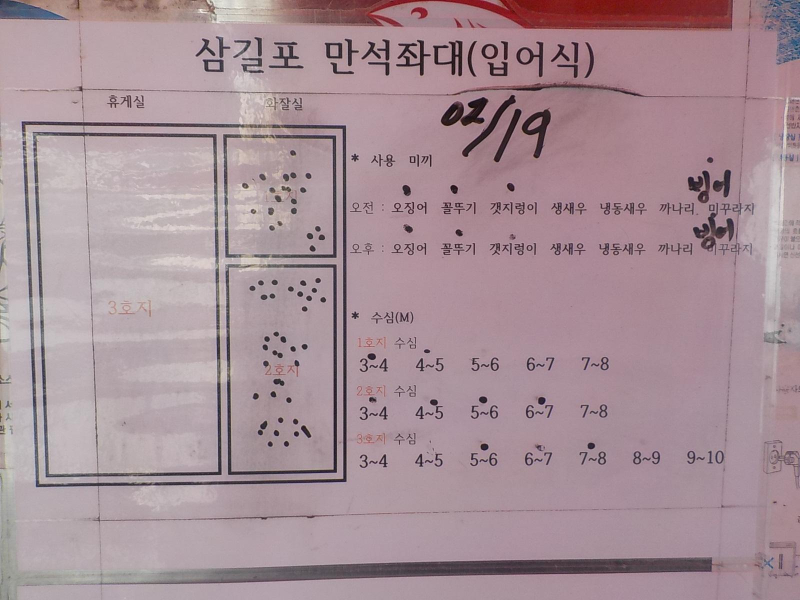 삼길포 만석좌대(입어식)
휴게실 화잘실
02/19
* 사용 미끼
빙어
오전 : 오징어 꼴뚜기 갯지렁이 생새우 냉동새우 까나리 미꾸라지
빙어
오후 : 오징어 꼴뚜기 갯지렁이 생새우 냉동새우 까나리 미꾸라지
3호지
2호지
* 수심(M)
1호지 수심
3~4 4~5 5~6 6~7 7~8
2호지 수심
3~4 4~5 5~6 6~7 7~8
3호지 수심
3~4 4~5 5~6 6~7 7~8 8~9 9~10